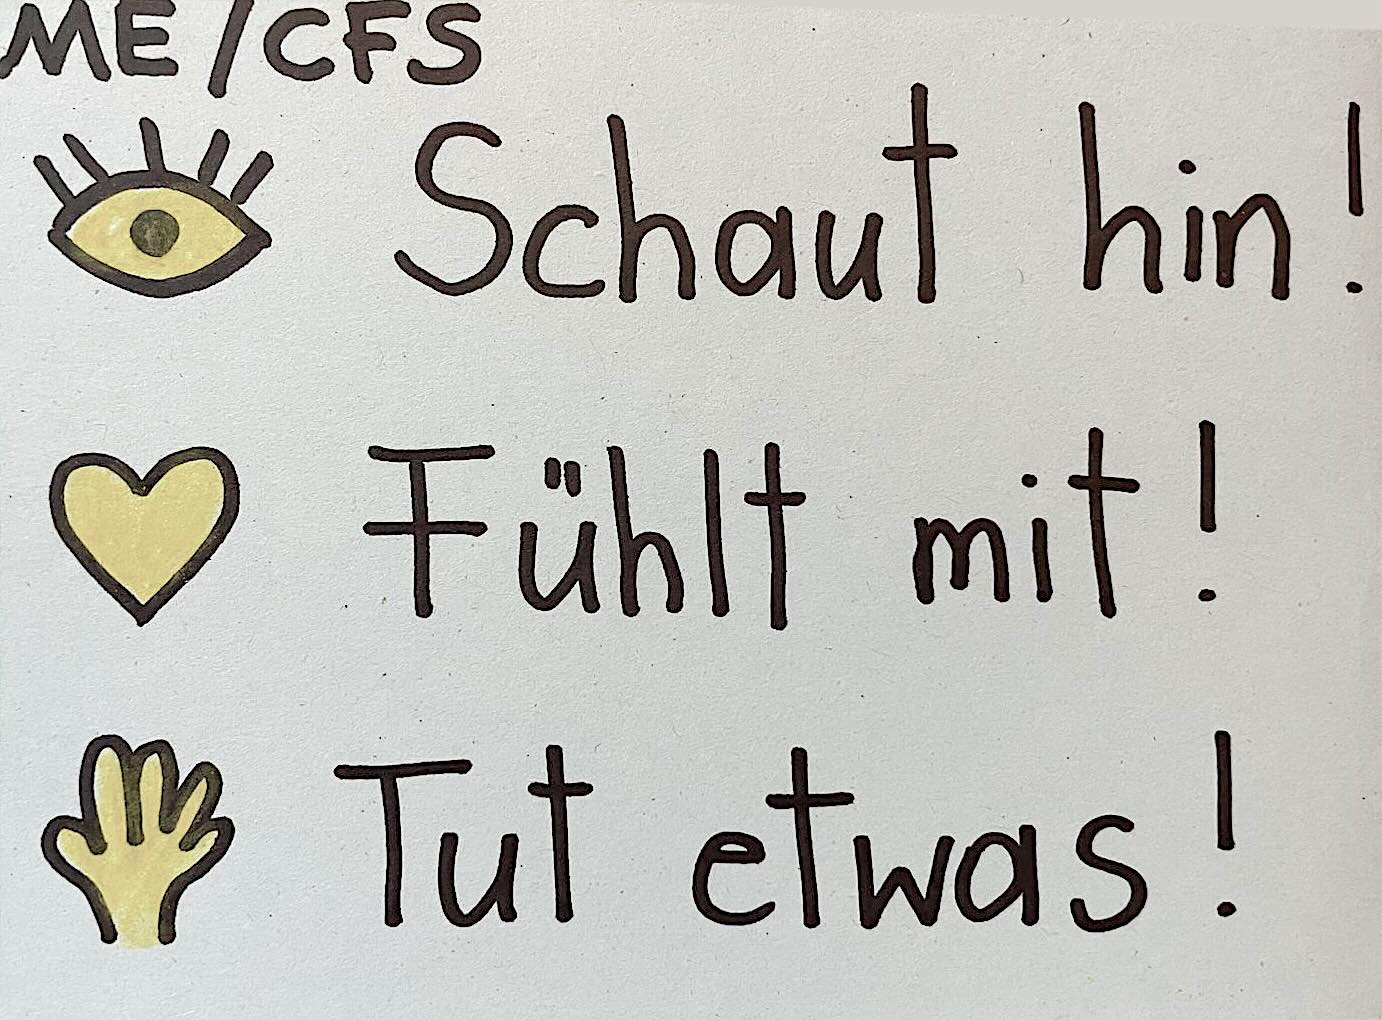 ME/CFS
Schaut hin!
Fühlt mit!
Tut etwas!